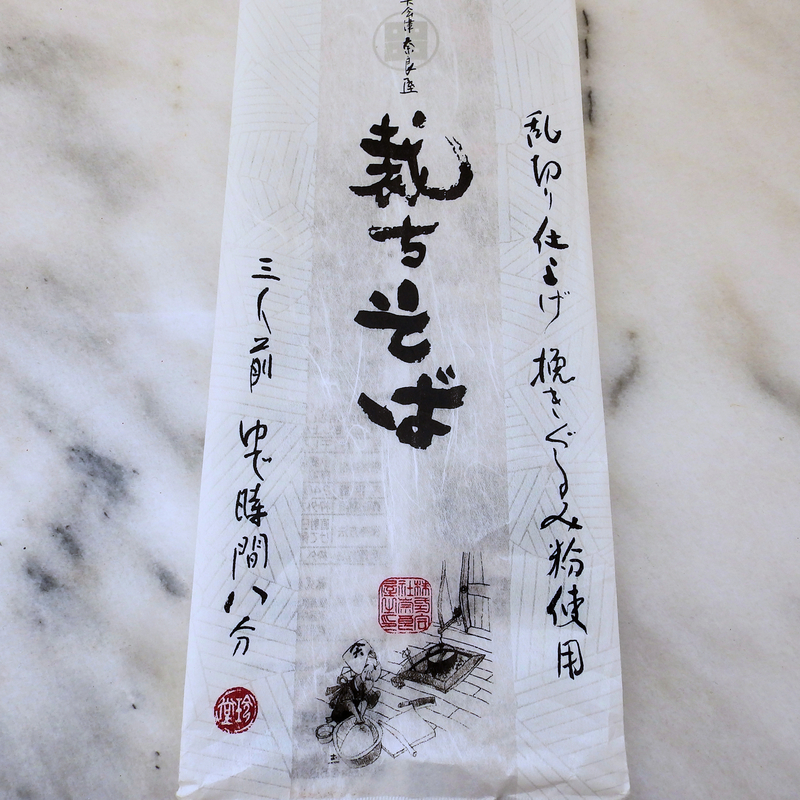 会津奈良屋
裁ちそば
乱切り仕上げ 挽きぐるみ粉使用
三人前 ゆで時間八分
珍堂